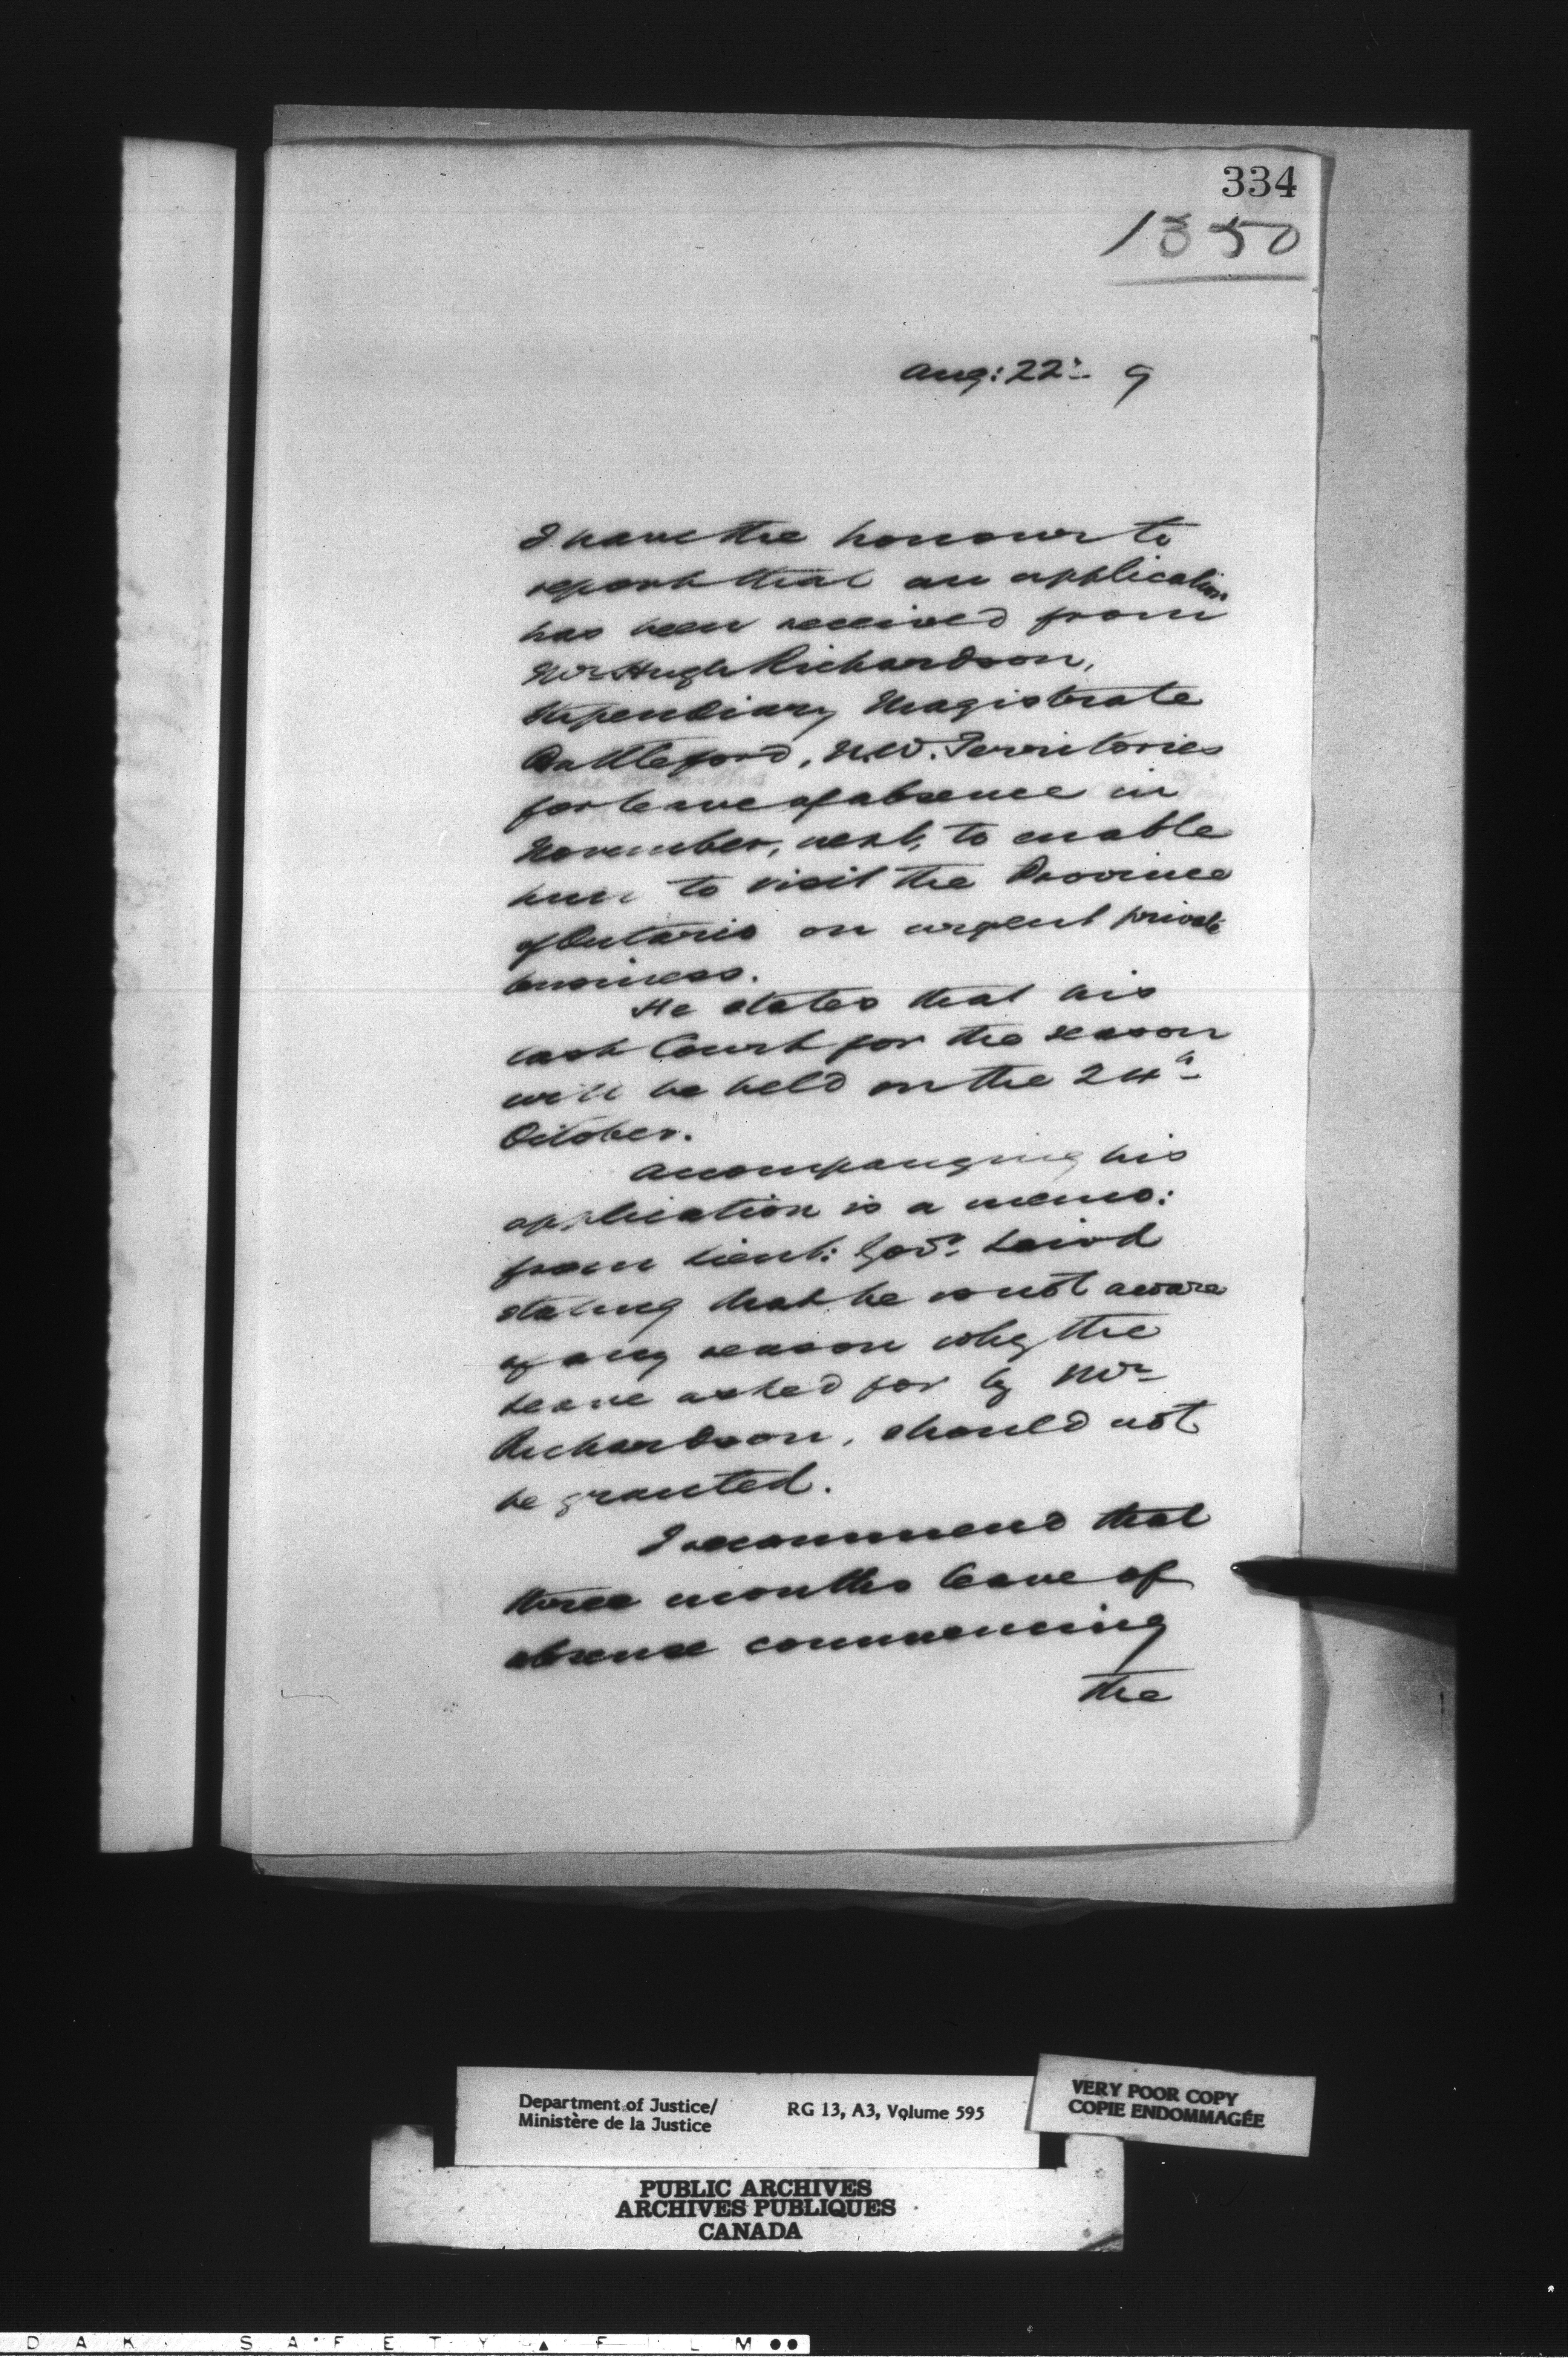 334
1350
Aug: 22nd 9
I have the honour to
report that an application
has been received from
Mr Hugh Richardson,
Stipendiary Magistrate
Battleford, N.W. Territories
for leave of absence in
November, next, to enable
him to visit the Province
of Ontario on urgent private
business.
He states that his
last Court for the season
will be held on the 24th
October.
Accompanying his
application is a memo:
from Lieut: Govr. Laird
stating that he is not aware
of any reason why the
leave asked for by Mr
Richardson, should not
be granted.
I recommend that
three months leave of
absence commencing
the
Department of Justice/
Ministère de la Justice
RG 13, A3, Volume 595
VERY POOR COPY
COPIE ENDOMMAGÉE
PUBLIC ARCHIVES
ARCHIVES PUBLIQUES
CANADA
D A K SAFETY ▲ FILM ●●